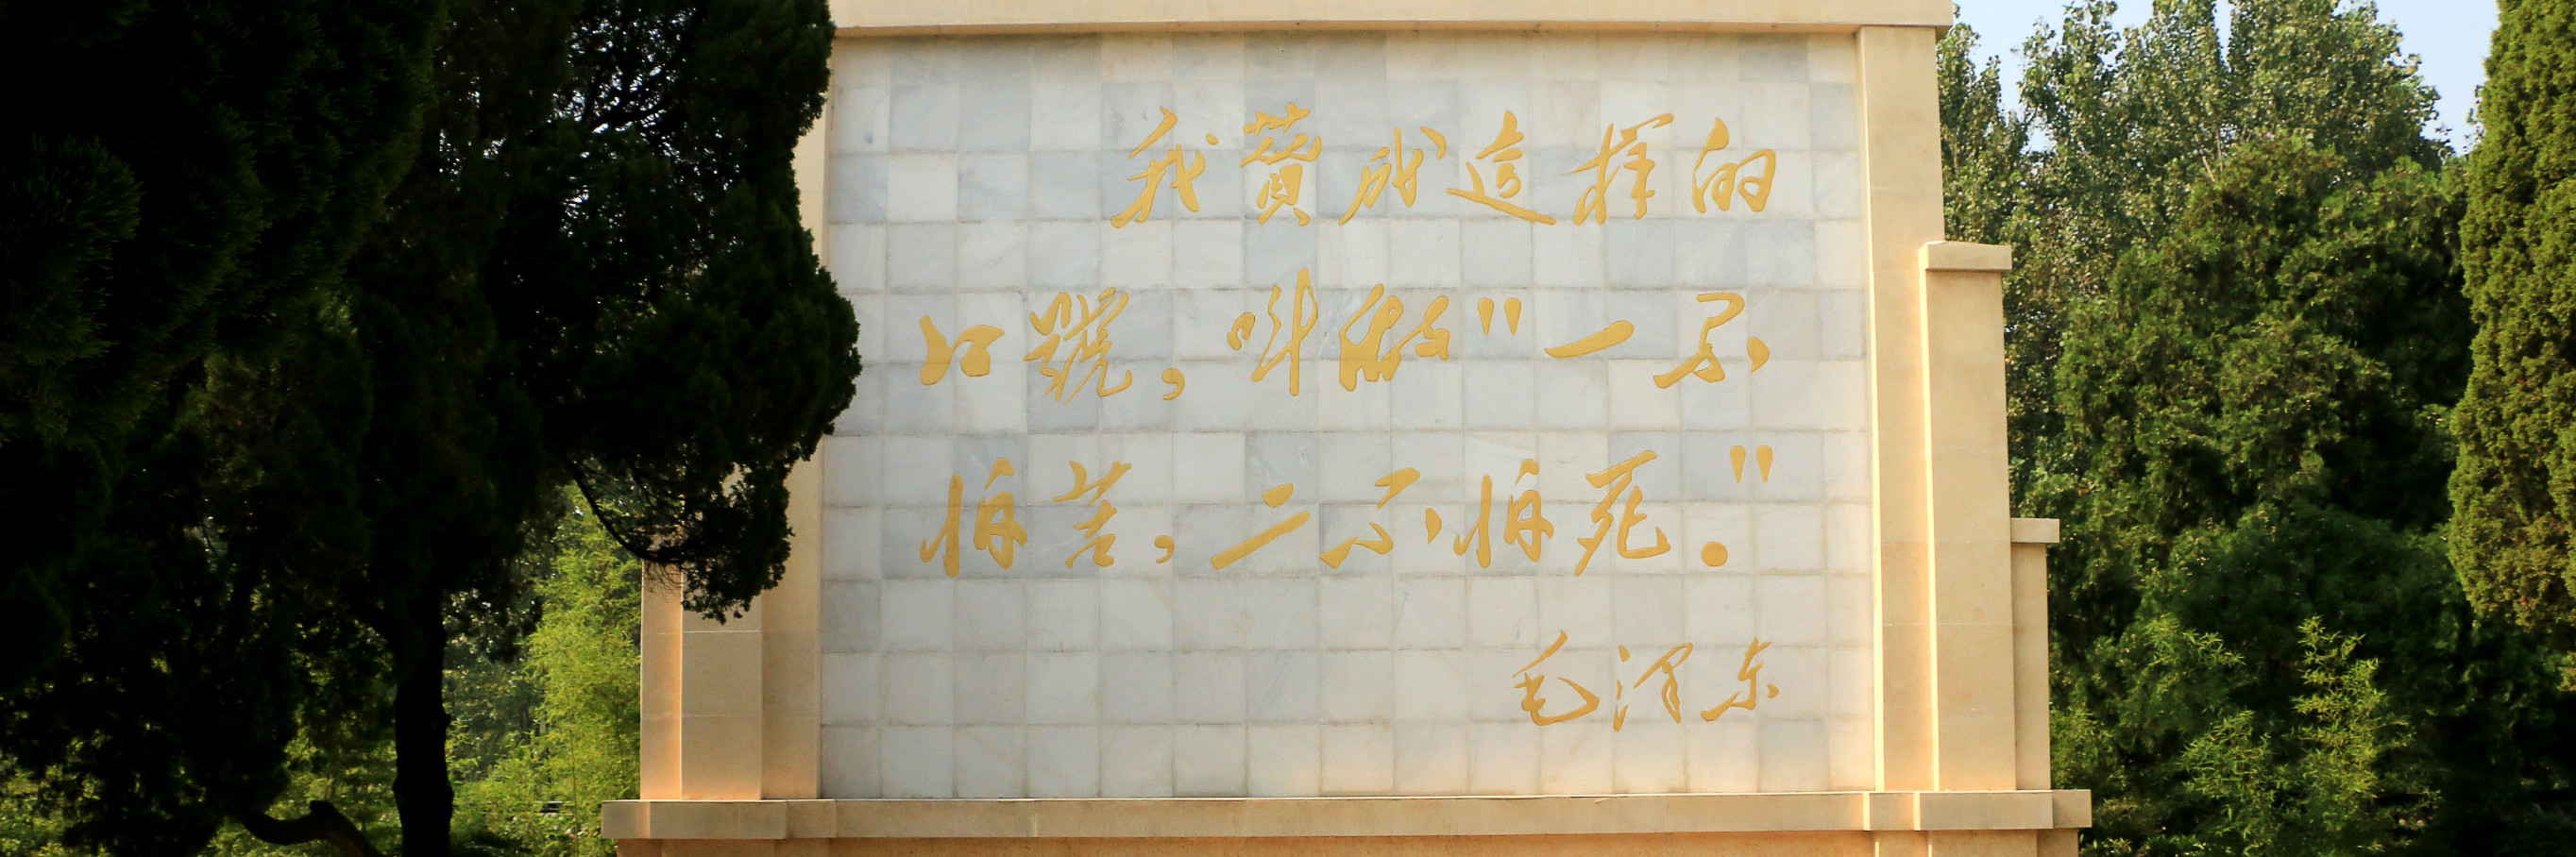 我贊成這样的
口號,叫做"一不
怕苦,二不怕死."
毛泽东